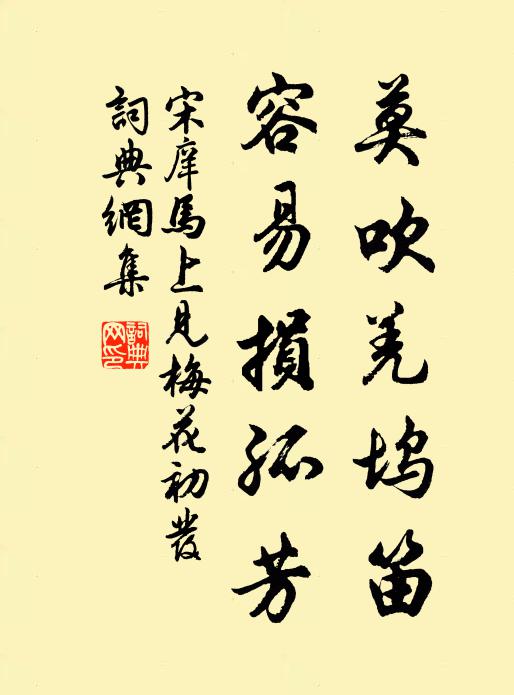 莫吹羌坞笛
容易損孤芳
宋庠馬上見梅花初發
詞典網集
詞典網印